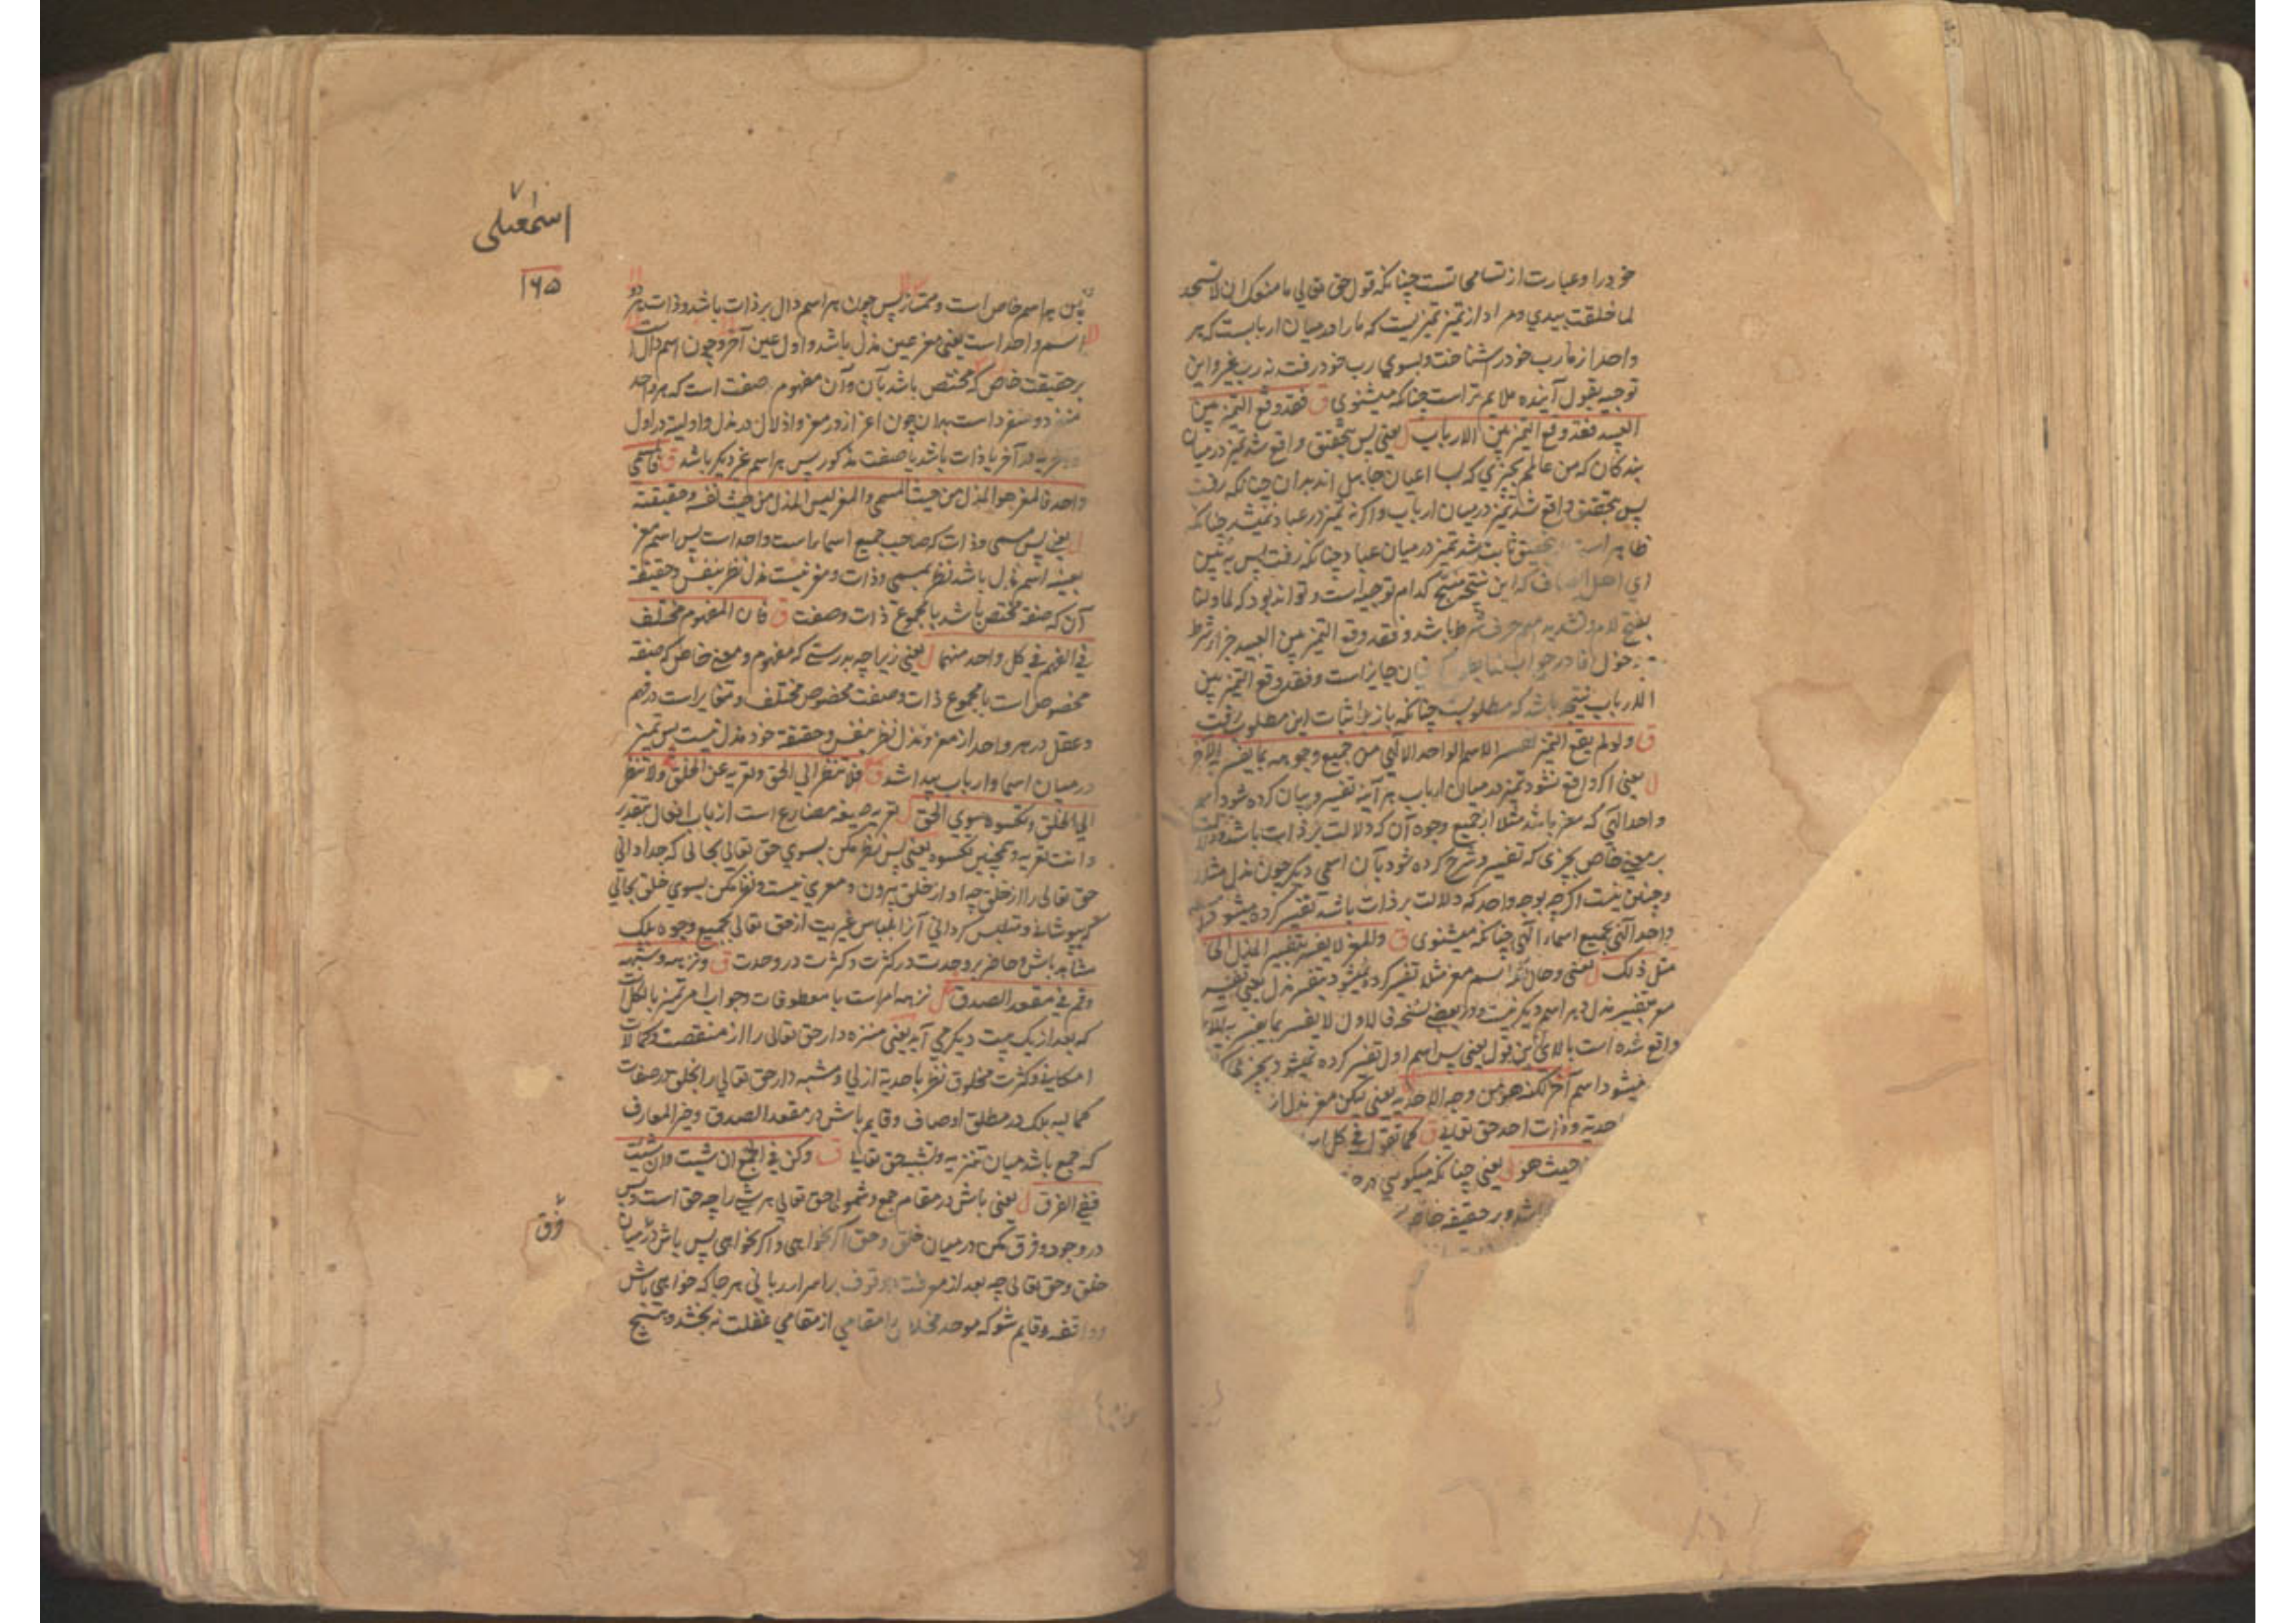 خود را و عبارت از تسامحی تست چنانکه قول حق تعالی ما منعک ان لا تسجد
لما خلقت بیدی و مراد از تمیز تمیزیست که ما را در میان اربابست که هر
واحد از ما رب خود را شناخت و بسوی رب خود رفت نه رب غیر و این
توجیه بقول آینده ملایم تر است چنانکه میشنوی ق فقد وقع التمیز بین
العبید فقد وقع التمیز بین الارباب ل یعنی پس بتحقیق واقع شد تمیز در میان
بندکان که من عالمم بچیزی که بسا اعیان جاهل اند بدان چنانکه رفت
پس بتحقیق واقع شد تمیز در میان ارباب و اکر نه تمیز در عباد نمیشد چنانکه
ظاهر است بتحقیق ثابت شد تمیز در میان عباد چنانکه رفت پس به بین
ای اهل انصاف که این نتیجه منتج کدام توجیه است و تواند بود که لما دلنا
بفتح لام و تشدید میم حرف شرط باشد و فقد وقع التمیز بین العبید جزا شرط
دخول فا در جواب لما جایز است و فقد وقع التمیز بین
الارباب نتیجه باشد که مطلوبست چنانکه باز بر اثبات این مطلوب رفت
ق ولو لم یقع التمیز لفسر الاسم الواحد الالهی من جمیع وجوهه بما یفسر به الآخر
ل یعنی اکر واقع نشود تمیز در میان ارباب هر آینه تفسیر و بیان کرده شود اسم
واحد الهی که معز باشد مثلا از جمیع وجوه آن که دلالت بر ذات باشد و دلالت
بر معنی خاص بچیزی که تفسیر و شرح کرده شود بآن اسمی دیکر چون مذل مثلا
و چنین نیست اکرچه بوجه واحد که دلالت بر ذات باشد تفسیر کرده میشود
واحد الهی بجمیع اسماء الهی چنانکه میشنوی ق والمعز لا یفسر بتفسیر المذل الی
مثل ذلک ل یعنی و حال آنکه اسم معز مثلا تفسیر کرده نمیشود بتفسیر مذل یعنی تفسیر
معز بتفسیر مذل و هر اسم دیکر نیست و در بعضی نسخه فالاول لا یفسر بما یفسر به الآخر
واقع شده است بالای این قول یعنی پس اسم اول تفسیر کرده نمیشود بچیزی که
میشود اسم آخر لکنه هو من وجه الاحدیة یعنی لیکن معز مذل از
احدیة و ذات احد حق تعالی ق کما تقول فی کل اسم
حیث هو ل یعنی چنانکه میکویی در حق
باشد و بر حقیقة خاص
اسمعیلی ۷
۱۶۵
پس هر اسم خاص است و ممتاز پس چون هر اسم دال بر ذات باشد و ذات هر دو
اسم واحد است یعنی معز عین مذل باشد و اول عین آخر و چون اسم دال است
بر حقیقت خاص که مختص باشد بآن و آن مفهوم صفت است که هر واحد
منفرد است بدان چون اعزاز در معز و اذلال در مذل و اولیة در اول
در آخر یا ذات باشد با صفت مذکور پس هر اسم غیر دیکر باشد ق فالمسمی
واحد فالمعز هو المذل من حیث المسمی والمعز لیس المذل من حیث نفسه وحقیقته
ل یعنی پس مسمی و ذات که صاحب جمیع اسماء است واحد است پس اسم معز
بعینه اسم مذل باشد نظر بمسمی و ذات و معز نیست مذل نظر بنفس و حقیقة
آن که صفة مختص باشد یا مجموع ذات و صفت ق فان المفهوم مختلف
فی الفهم فی کل واحد منهما ل یعنی زیرا چه بدرستی که مفهوم و معنی خاص که صفة
مخصوص است یا مجموع ذات و صفت مخصوص مختلف و متغایر است در فهم
و عقل در هر واحد از معز و مذل نظر بنفس و حقیقة خود مذل نیست پس تمیز
در میان اسما و ارباب پیدا شد ق فلا تنظر الی الحق وتعریه عن الخلق ولا تنظر
الی الخلق وتکسوه سوی الحق ل تعریه صیغه مضارع است از باب افعال بتقدیر
وانت تعریه و همچنین تکسوه یعنی پس نظر مکن بسوی حق تعالی بحالی که جدا دانی
حق تعالی را از خلق چه او از خلق بیرون و معری نیست و نظر مکن بسوی خلق بحالی
که بپوشانی و متلبس کردانی آنرا بلباس غیریت از حق تعالی بجمیع وجوه بلک
مشاهد باش و حاضر بر وحدت در کثرت و کثرت در وحدت ق ونزهه وشبهه
وقم فی مقعد الصدق ل نزهه امر است با معطوفات و جواب امر تمیز بالکل است
که بعد از یک بیت دیکر می آید یعنی منزه دار حق تعالی را از منقصت و کمالات
امکانیه و کثرت مخلوق نظر باحدیة ازلی و مشبه دار حق تعالی را بخلق در صفات
کمالیه بلک در مطلق اوصاف و قایم باش در مقعد الصدق و خیر المعارف
که جمع باشد میان تنزیه و تشبیه حق تعالی ق وکن فی الجمع ان شئت وان شئت
ففی الفرق ل یعنی باش در مقام جمع و شمول حق تعالی هر شی را چه حق است و بس
در وجود و فرق مکن در میان خلق و حق اکر بخواهی و اکر بخواهی پس باش در میان
فرق
خلق و حق تعالی چه بعد از معرفت و وقوف بر اسرار ربانی هر جا که خواهی باش
و واقف و قایم شو که موحد را مقامی از مقامی غفلت نه بخشد و منتج